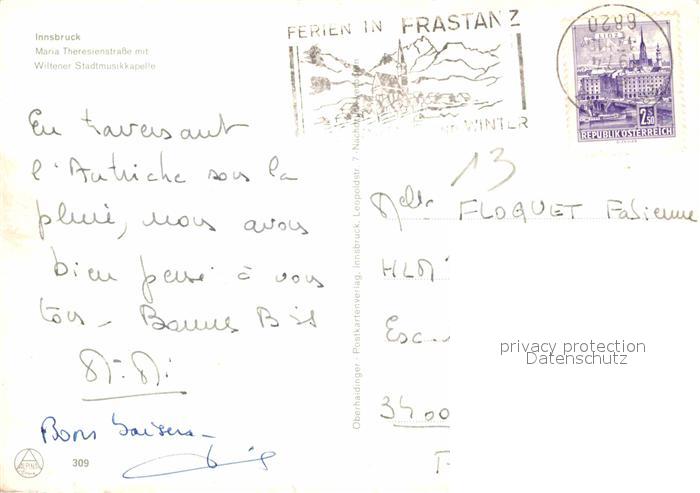 Innsbruck
Maria Theresienstraße mit
Wiltener Stadtmusikkapelle
FERIEN IN FRASTANZ
WINTER
6820
LINZ
2.50
REPUBLIK ÖSTERREICH
En traversant
l'Autriche sous la
pluie, nous avons
bien pensé à vous
tous - Bonnes Bises
Bons baisers -
309
Oberhaidinger - Postkartenverlag, Innsbruck, Leopoldstr. 7
13
Melle FLOQUET Fabienne
HLM
3400
privacy protection
Datenschutz